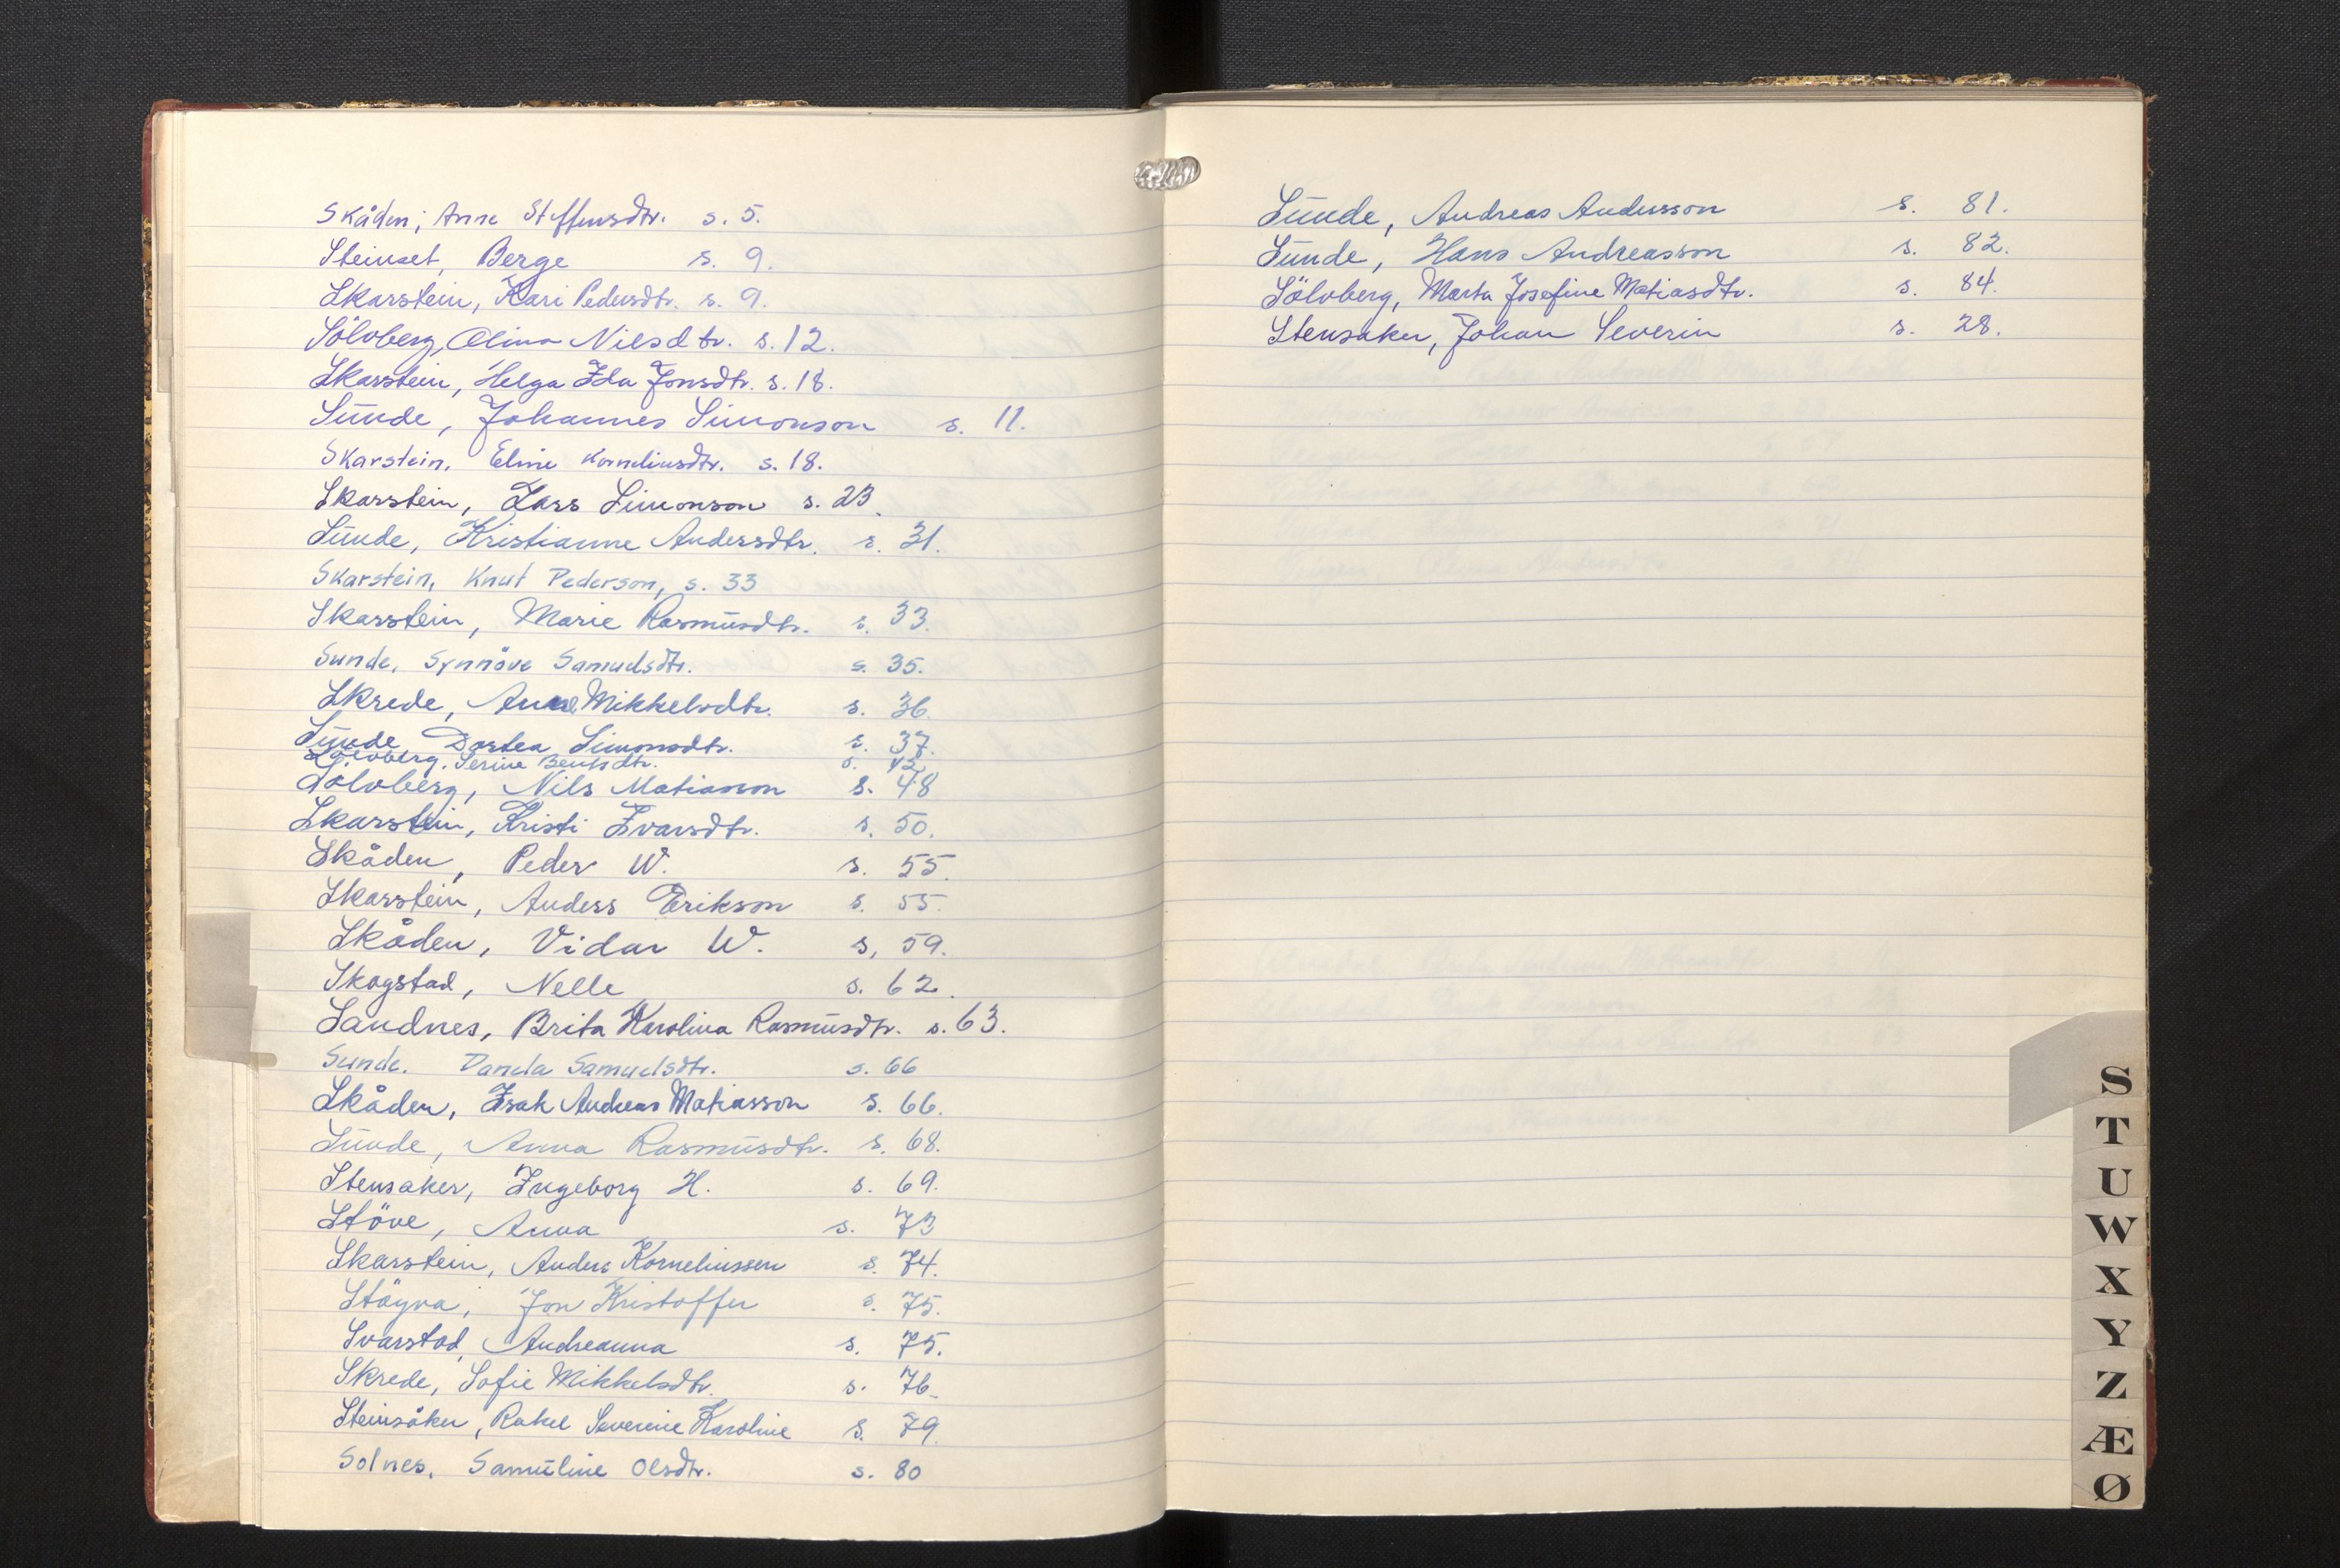 Skåden, Anna Steffensdtr. s. 5.
Steinset, Berge s. 9.
Skarstein, Kari Pedersdtr. s. 9.
Sölvberg, Olina Nilsdtr. s. 12.
Skarstein, Helga Ida Jonsdtr. s. 18.
Sunde, Johannes Simonson s. 11.
Skarstein, Eline Korneliusdtr. s. 18.
Skarstein, Lars Simonson s. 23.
Sunde, Kristianne Andersdtr. s. 31.
Skarstein, Knut Pederson, s. 33
Skarstein, Marie Rasmusdtr. s. 33.
Sunde, Synnöve Samuelsdtr. s. 35.
Skrede, Anne Mikkelsdtr. s. 36.
Sunde Dortea Simonsdtr. s. 37.
Sölvberg, Serine Bentsdtr. s. 42.
Sölvberg, Nils Matiasson s. 48
Skarstein, Kristi Ivarsdtr. s. 50.
Skåden, Peder W. s. 55.
Skarstein, Anders Erikson s. 55.
Skåden, Vidar W. s, 59.
Skogstad, Nelle s. 62.
Sandnes, Brita Karolina Rasmusdtr. s. 63.
Sunde. Danela Samuelsdtr. s. 66
Skåden, Isak Andreas Matiasson s. 66.
Sunde, Anna Rasmusdtr. s. 68.
Stensaker, Ingeborg H. s. 69.
Stöve, Anna s. 73
Skarstein, Anders Korneliussen s. 74.
Stöyva, Jon Kristoffer s. 75.
Svarstad, Andreanna s. 75.
Skrede, Sofie Mikkelsdtr. s. 76.
Steinsåker, Rakel Severine Karoline s. 79.
Solnes, Samuline Olsdtr. s. 80
Sunde, Andreas Andersson s. 81.
Sunde, Hans Andreasson s. 82.
Sölvberg, Marta Josefine Matiasdtr. s. 84.
Stensaker, Johan Severin s. 28.
S
T
U
W
X
Y
Z
Æ
Ø